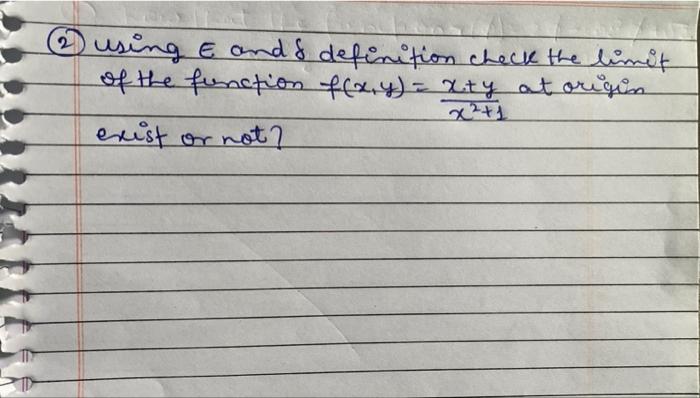 ② using ε and δ definition check the limit
of the function f(x,y) = x+y / x²+1 at origin
exist or not?